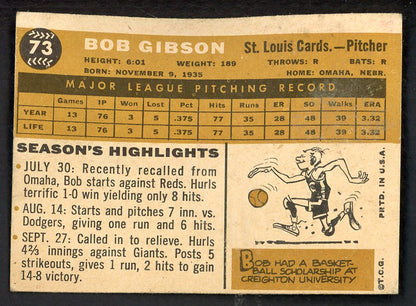 73
BOB GIBSON
St. Louis Cards.—Pitcher
HEIGHT: 6:01 WEIGHT: 189 THROWS: R BATS: R
BORN: NOVEMBER 9, 1935 HOME: OMAHA, NEBR.
MAJOR LEAGUE PITCHING RECORD
Games IP Won Lost Pct. Hits Runs ER SO Walks ERA
YEAR 13 76 3 5 .375 77 35 28 48 39 3.32
LIFE 13 76 3 5 .375 77 35 28 48 39 3.32
SEASON'S HIGHLIGHTS
• JULY 30: Recently recalled from
Omaha, Bob starts against Reds. Hurls
terrific 1-0 win yielding only 8 hits.
• AUG. 14: Starts and pitches 7 inn. vs.
Dodgers, giving one run and 6 hits.
• SEPT. 27: Called in to relieve. Hurls
4⅔ innings against Giants. Posts 5
strikeouts, gives 1 run, 2 hits to gain
14-8 victory.
BOB HAD A BASKET-
BALL SCHOLARSHIP AT
CREIGHTON UNIVERSITY
©T.C.G. PRTD. IN U.S.A.